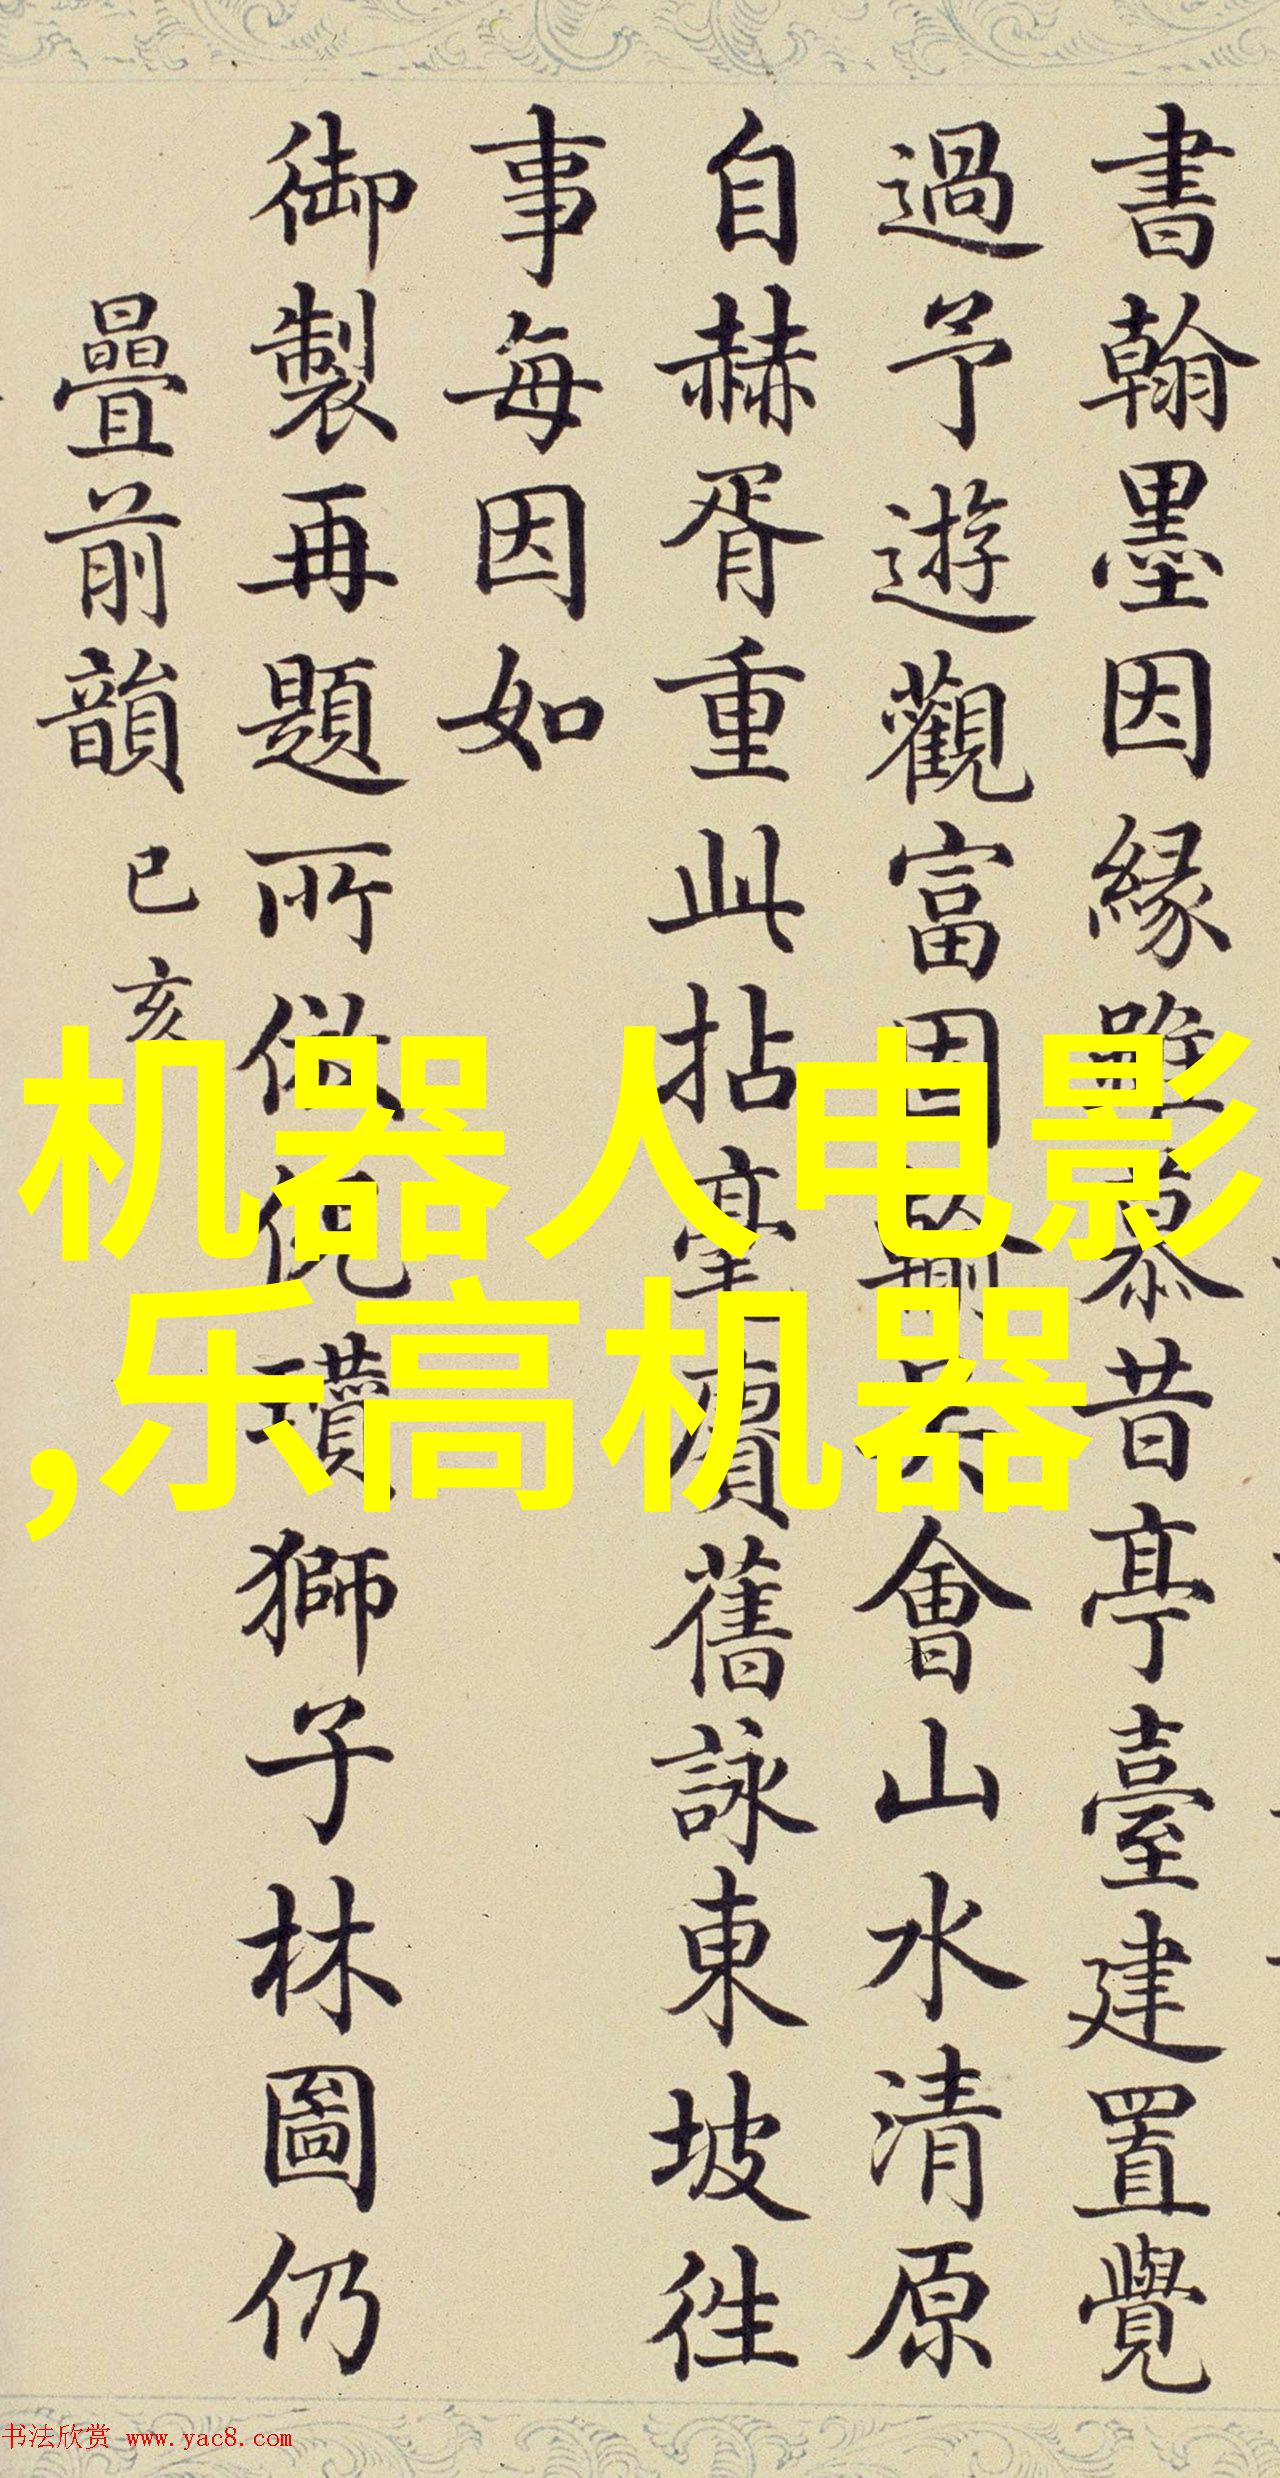 書翰墨因緣雖慕昔亭臺建置覺
過予遊觀富因會山水清原
自赫胥重此拈毫賡舊詠東坡徃
事每因如
御製再題所倣倪瓚獅子林圖仍
疊前韻 已亥
机器人电影
,乐高机器
书法欣赏 www.yac8.com